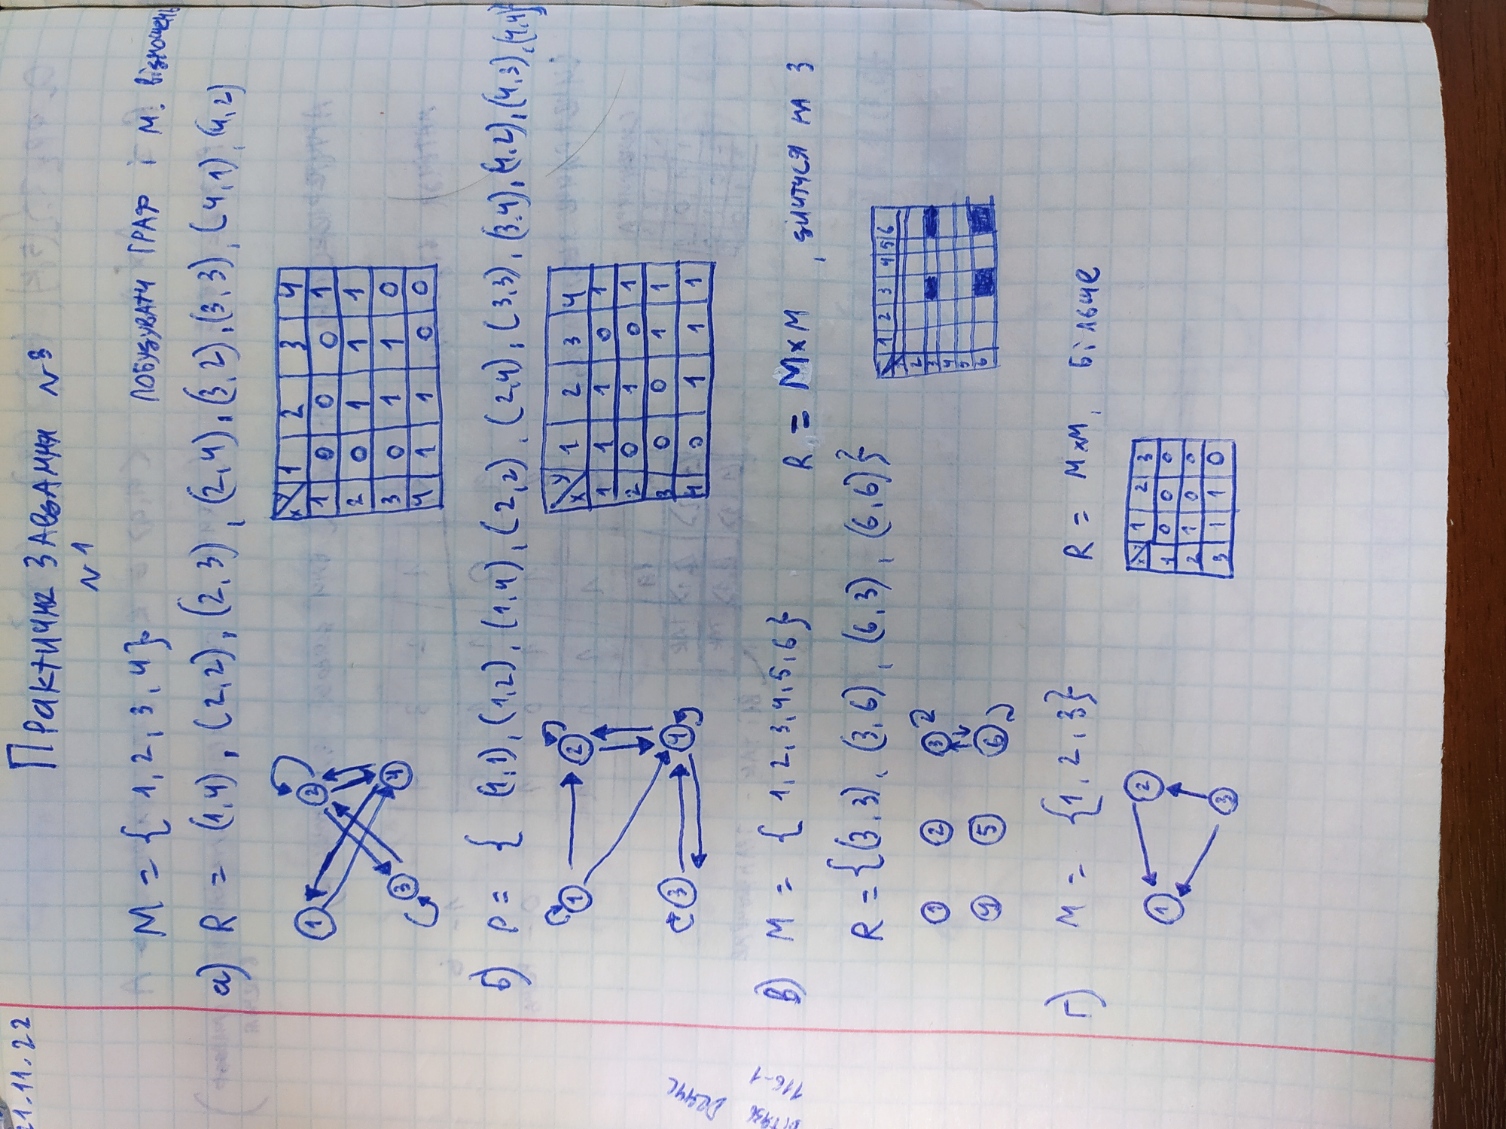 21.11.22
Практичне завдання №3
№1
M = { 1, 2, 3, 4 } побудувати граф і м. відношень
а) R = (1,4), (2,2), (2,3), (2,4), (3,2), (3,3), (4,1), (4,2)
1 2 3 4
x y 1 2 3 4
1 0 0 0 1
2 0 1 1 1
3 0 1 1 0
4 1 1 0 0
б) P = { (1,1), (1,2), (1,4), (2,2), (2,4), (3,3), (3,4), (4,2), (4,3), (4,4)}
1 2 3 4
x y 1 2 3 4
1 1 1 0 1
2 0 1 0 1
3 0 0 1 1
4 0 1 1 1
116-1
в) M = { 1, 2, 3, 4, 5, 6 } R = M×M, ділиться на 3
R = {(3,3), (3,6), (6,3), (6,6)}
1 2 3
4 5 6
1 2 3 4 5 6
2
3
4
5
6
г) M = {1, 2, 3} R = M×M, більше
1 2 3
1 2 3
1 0 0 0
2 1 0 0
3 1 1 0